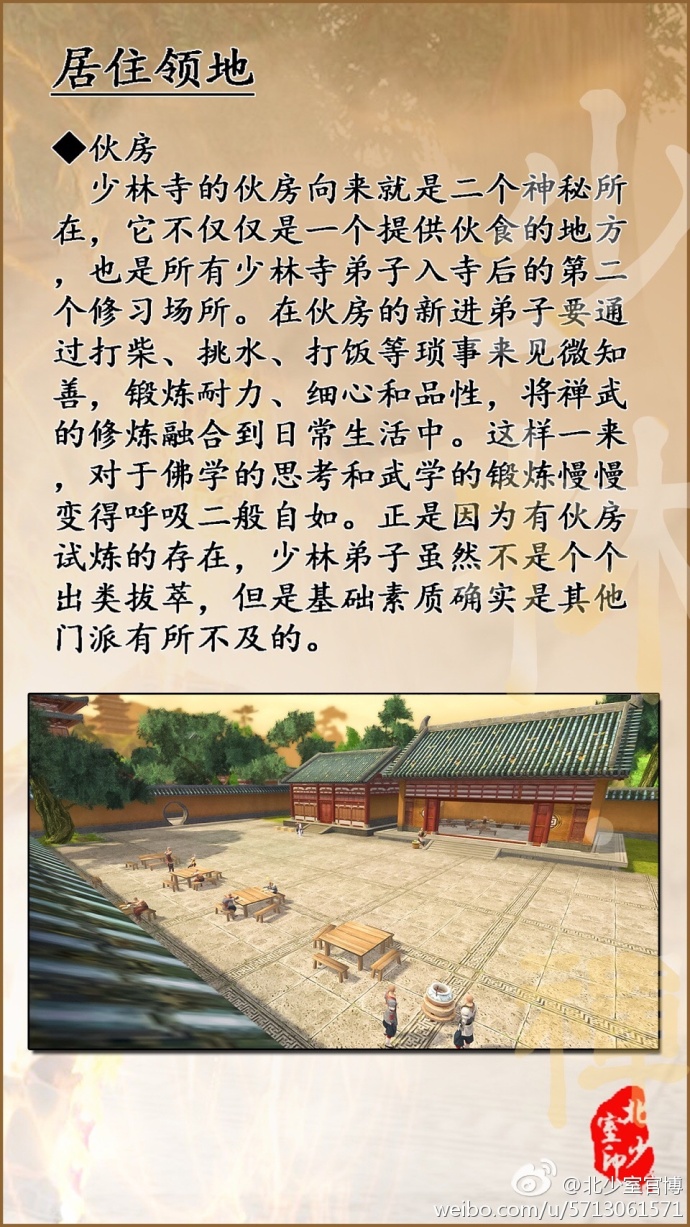 居住领地
◆伙房
少林寺的伙房向来就是二个神秘所
在，它不仅仅是一个提供伙食的地方
，也是所有少林寺弟子入寺后的第二
个修习场所。在伙房的新进弟子要通
过打柴、挑水、打饭等琐事来见微知
善，锻炼耐力、细心和品性，将禅武
的修炼融合到日常生活中。这样一来
，对于佛学的思考和武学的锻炼慢慢
变得呼吸二般自如。正是因为有伙房
试炼的存在，少林弟子虽然不是个个
出类拔萃，但是基础素质确实是其他
门派有所不及的。
少林
禅
北少
室印
@北少室官博
weibo.com/u/5713061571